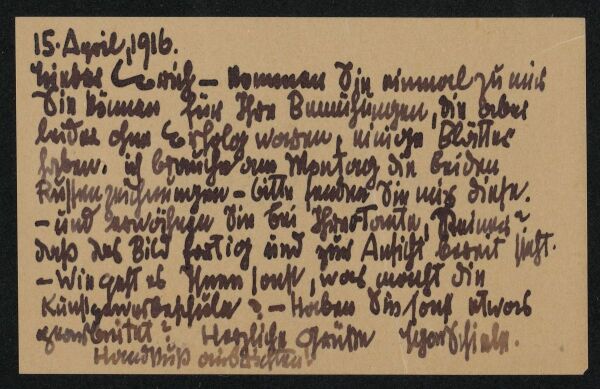 15. April, 1916.
Lieber Erich – kommen Sie einmal zu mir
Sie können für Ihre Bemühungen, die aber
leider ohne Erfolg waren, einige Blätter
haben. ich brauche am Montag die beiden
Russenzeichnungen – bitte senden Sie mir diese.
– und erwähnen Sie bei Ihrer Tante,
daß das Bild fertig und zur Ansicht bereit steht.
– Wie geht es Ihnen sonst, was macht die
Kunstgewerbeschule? – Haben Sie sonst etwas
gearbeitet? Herzliche Grüße Egon Schiele.
Handkuß